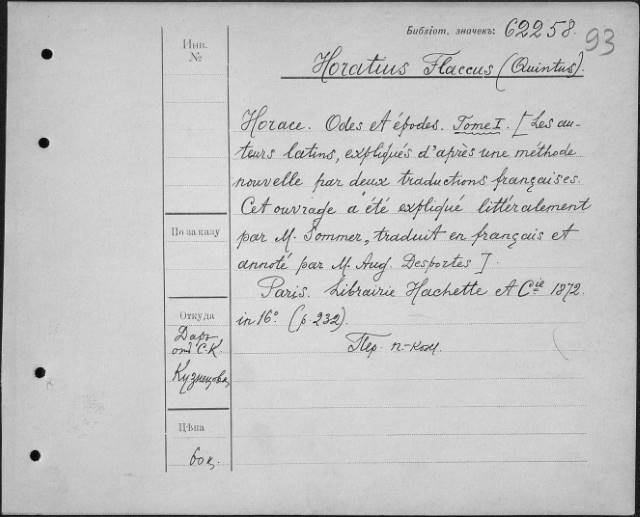 Библіот. значекъ: 62258.
93
Инв.
№
Horatius Flaccus (Quintus).
Horace. Odes et épodes. Tome I. [Les au-
teurs latins, expliqués d'après une méthode
nouvelle par deux traductions françaises.
Cet ouvrage a été expliqué littéralement
par M. Sommer, traduit en français et
annoté par M. Aug. Desportes].
Paris. Librairie Hachette et Cie 1872.
in 16° (p. 232).
Пер. п-кож.
По заказу
Откуда
Даръ
отъ С.К.
Кузнецова
Цѣна
60 к.